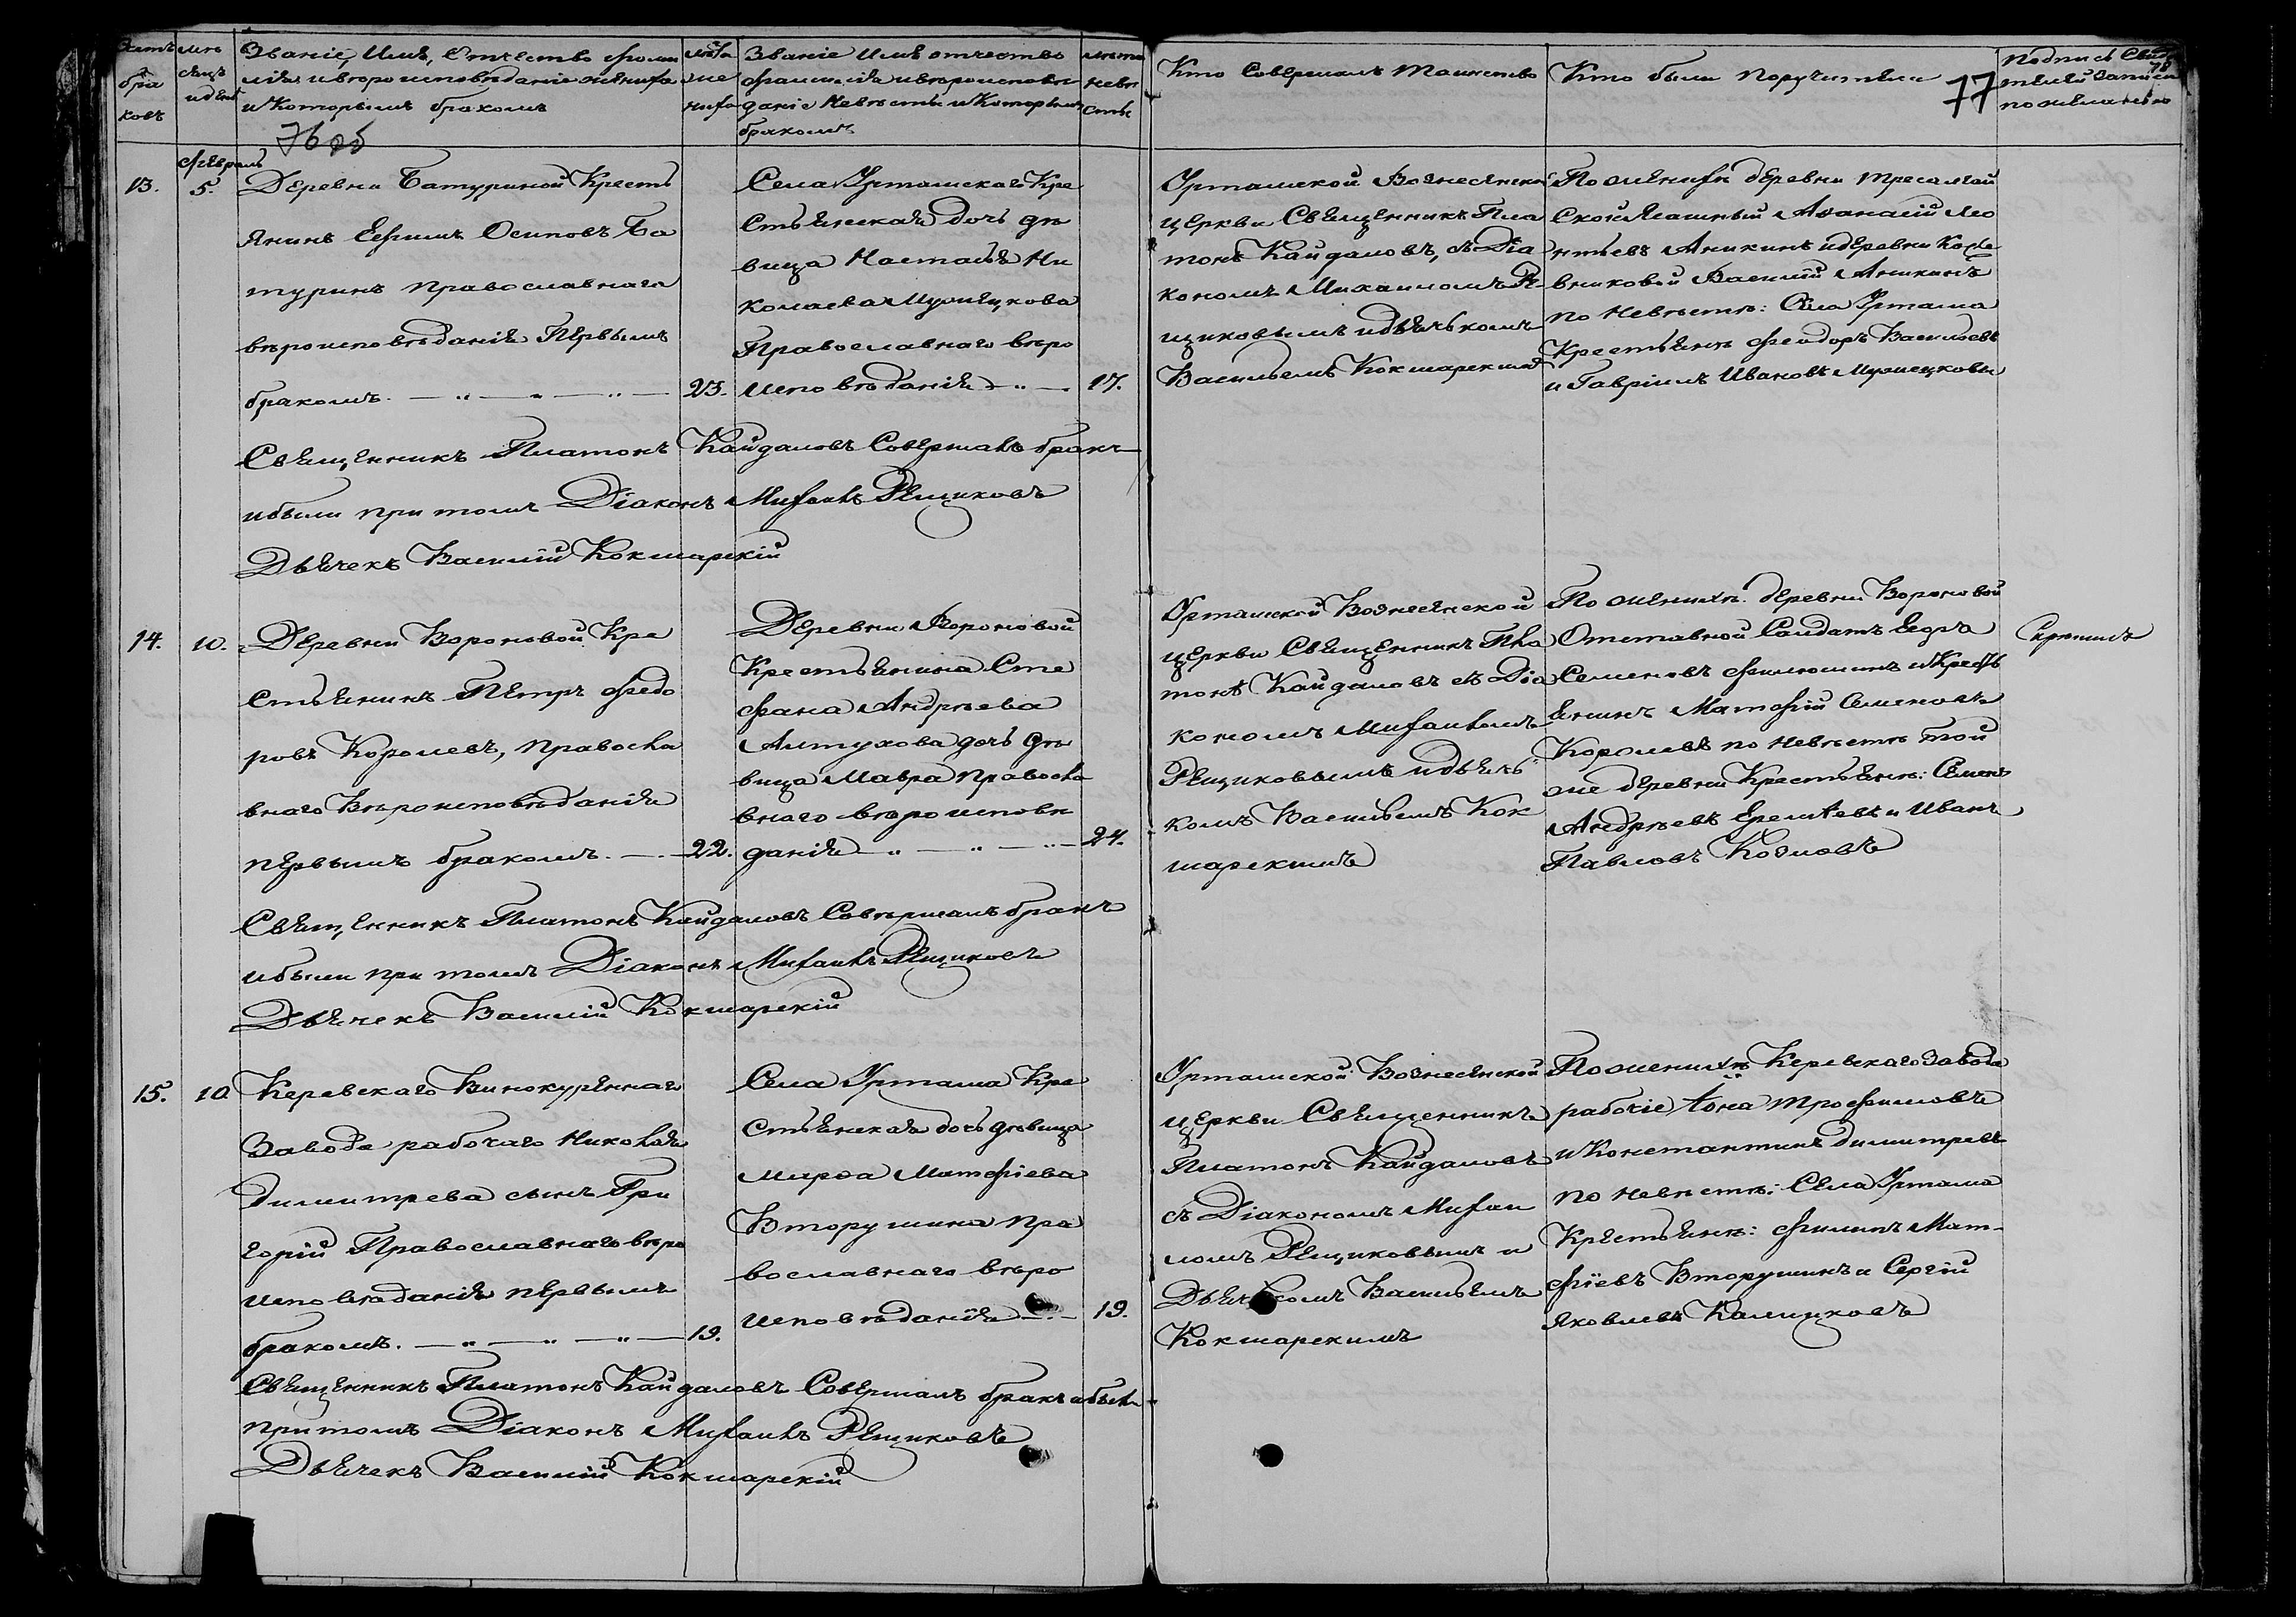 Счетъ
бра
ковъ
мѣ
сяцъ
и день
Званіе, Имя, Отчество фами
лія и вѣроисповѣданіе жениха
и Которымъ бракомъ
76 об
лѣта
же
ниха
Званіе Имя отчество
фамилія и вѣроисповѣ
даніе Невѣсты и Которымъ
бракомъ
лѣта
невѣ
сты
Кто Совершалъ Таинство
Кто были поручители
77
Подпись Свидѣ
телей записи
по желанію
78
Февраль
13.
5.
Деревни Батуриной Кресть
янинъ Ефимъ Осиповъ Ба
туринъ православнаго
вѣроисповѣданія Первымъ
бракомъ.
23.
Села Уртамскаго Кре
стьянская дочь дѣ
вица Настасья Ни
колаева Мурнецкова
Православнаго вѣро
исповѣданія
17.
Уртамской Вознесенской
церкви Священникъ Пла
тонъ Кайдаловъ, съ Діа
кономъ Михаиломъ Ре
щиковымъ и дьячькомъ
Васильемъ Кокшарскимъ
По женихѣ деревни
Аѳанасій Лео
нтьевъ Аникинъ и деревни Коже
вниковой Василій Аникинъ
по Невѣстѣ: Села Уртама
Крестьяне Феодоръ Васильевъ
и Гавріилъ Ивановъ Мурнецковы
Священникъ Платонъ Кайдаловъ Совершалъ бракъ
и были при томъ Діаконъ Михаилъ Рещиковъ
Дьячекъ Василій Кокшарскій
14.
10.
Деревни Вороновой Кре
стьянинъ Петръ Федо
ровъ Королевъ, Правосла
внаго Вѣроисповѣданія
первымъ бракомъ.
22.
Деревни Вороновой
Крестьянина Сте
фана Андрѣева
Алтухова дочь дѣ
вица Мавра правосла
внаго вѣроисповѣ
данія
24.
Уртамской Вознесенской
церкви Священникъ Пла
тонъ Кайдаловъ съ Діа
кономъ Михаиломъ
Рещиковымъ и дьячь
комъ Васильемъ Кок
шарскимъ
По женихѣ: деревни Вороновой
Отставной Солдатъ Егоръ
Семеновъ Филюшинъ и Кресть
янинъ Матфій Семеновъ
Королевъ по Невѣстѣ той
же деревни Крестьяне: Семенъ
Андрѣевъ Еремѣевъ и Иванъ
Павловъ Козловъ
Священникъ Платонъ Кайдаловъ Совершалъ бракъ
и были при томъ Діаконъ Михаилъ Рещиковъ
Дьячекъ Василій Кокшарскій
15.
10
Керевскаго Винокуреннаго
Завода рабочаго Николая
Димитрева сынъ Гри
горій Православнаго вѣро
исповѣданія первымъ
бракомъ.
19.
Села Уртама Кре
стьянская дочь дѣвица
Марѳа Матфіева
Вторушина пра
вославнаго вѣро
исповѣданія
19.
Уртамской Вознесенской
церкви Священникъ
Платонъ Кайдаловъ
съ Діакономъ Михаи
ломъ Рещиковымъ и
Дьячькомъ Васильемъ
Кокшарскимъ
По женихѣ Керевскаго Завода
рабочіе Іона Трофимовъ
и Константинъ Димитревъ
по невѣстѣ: Села Уртама
Крестьяне: Филипъ Мат-
фіевъ Вторушинъ и Сергій
Яковлевъ Калицковъ
Священникъ Платонъ Кайдаловъ Совершалъ бракъ и были
при томъ Діаконъ Михаилъ Рещиковъ
Дьячекъ Василій Кокшарскій